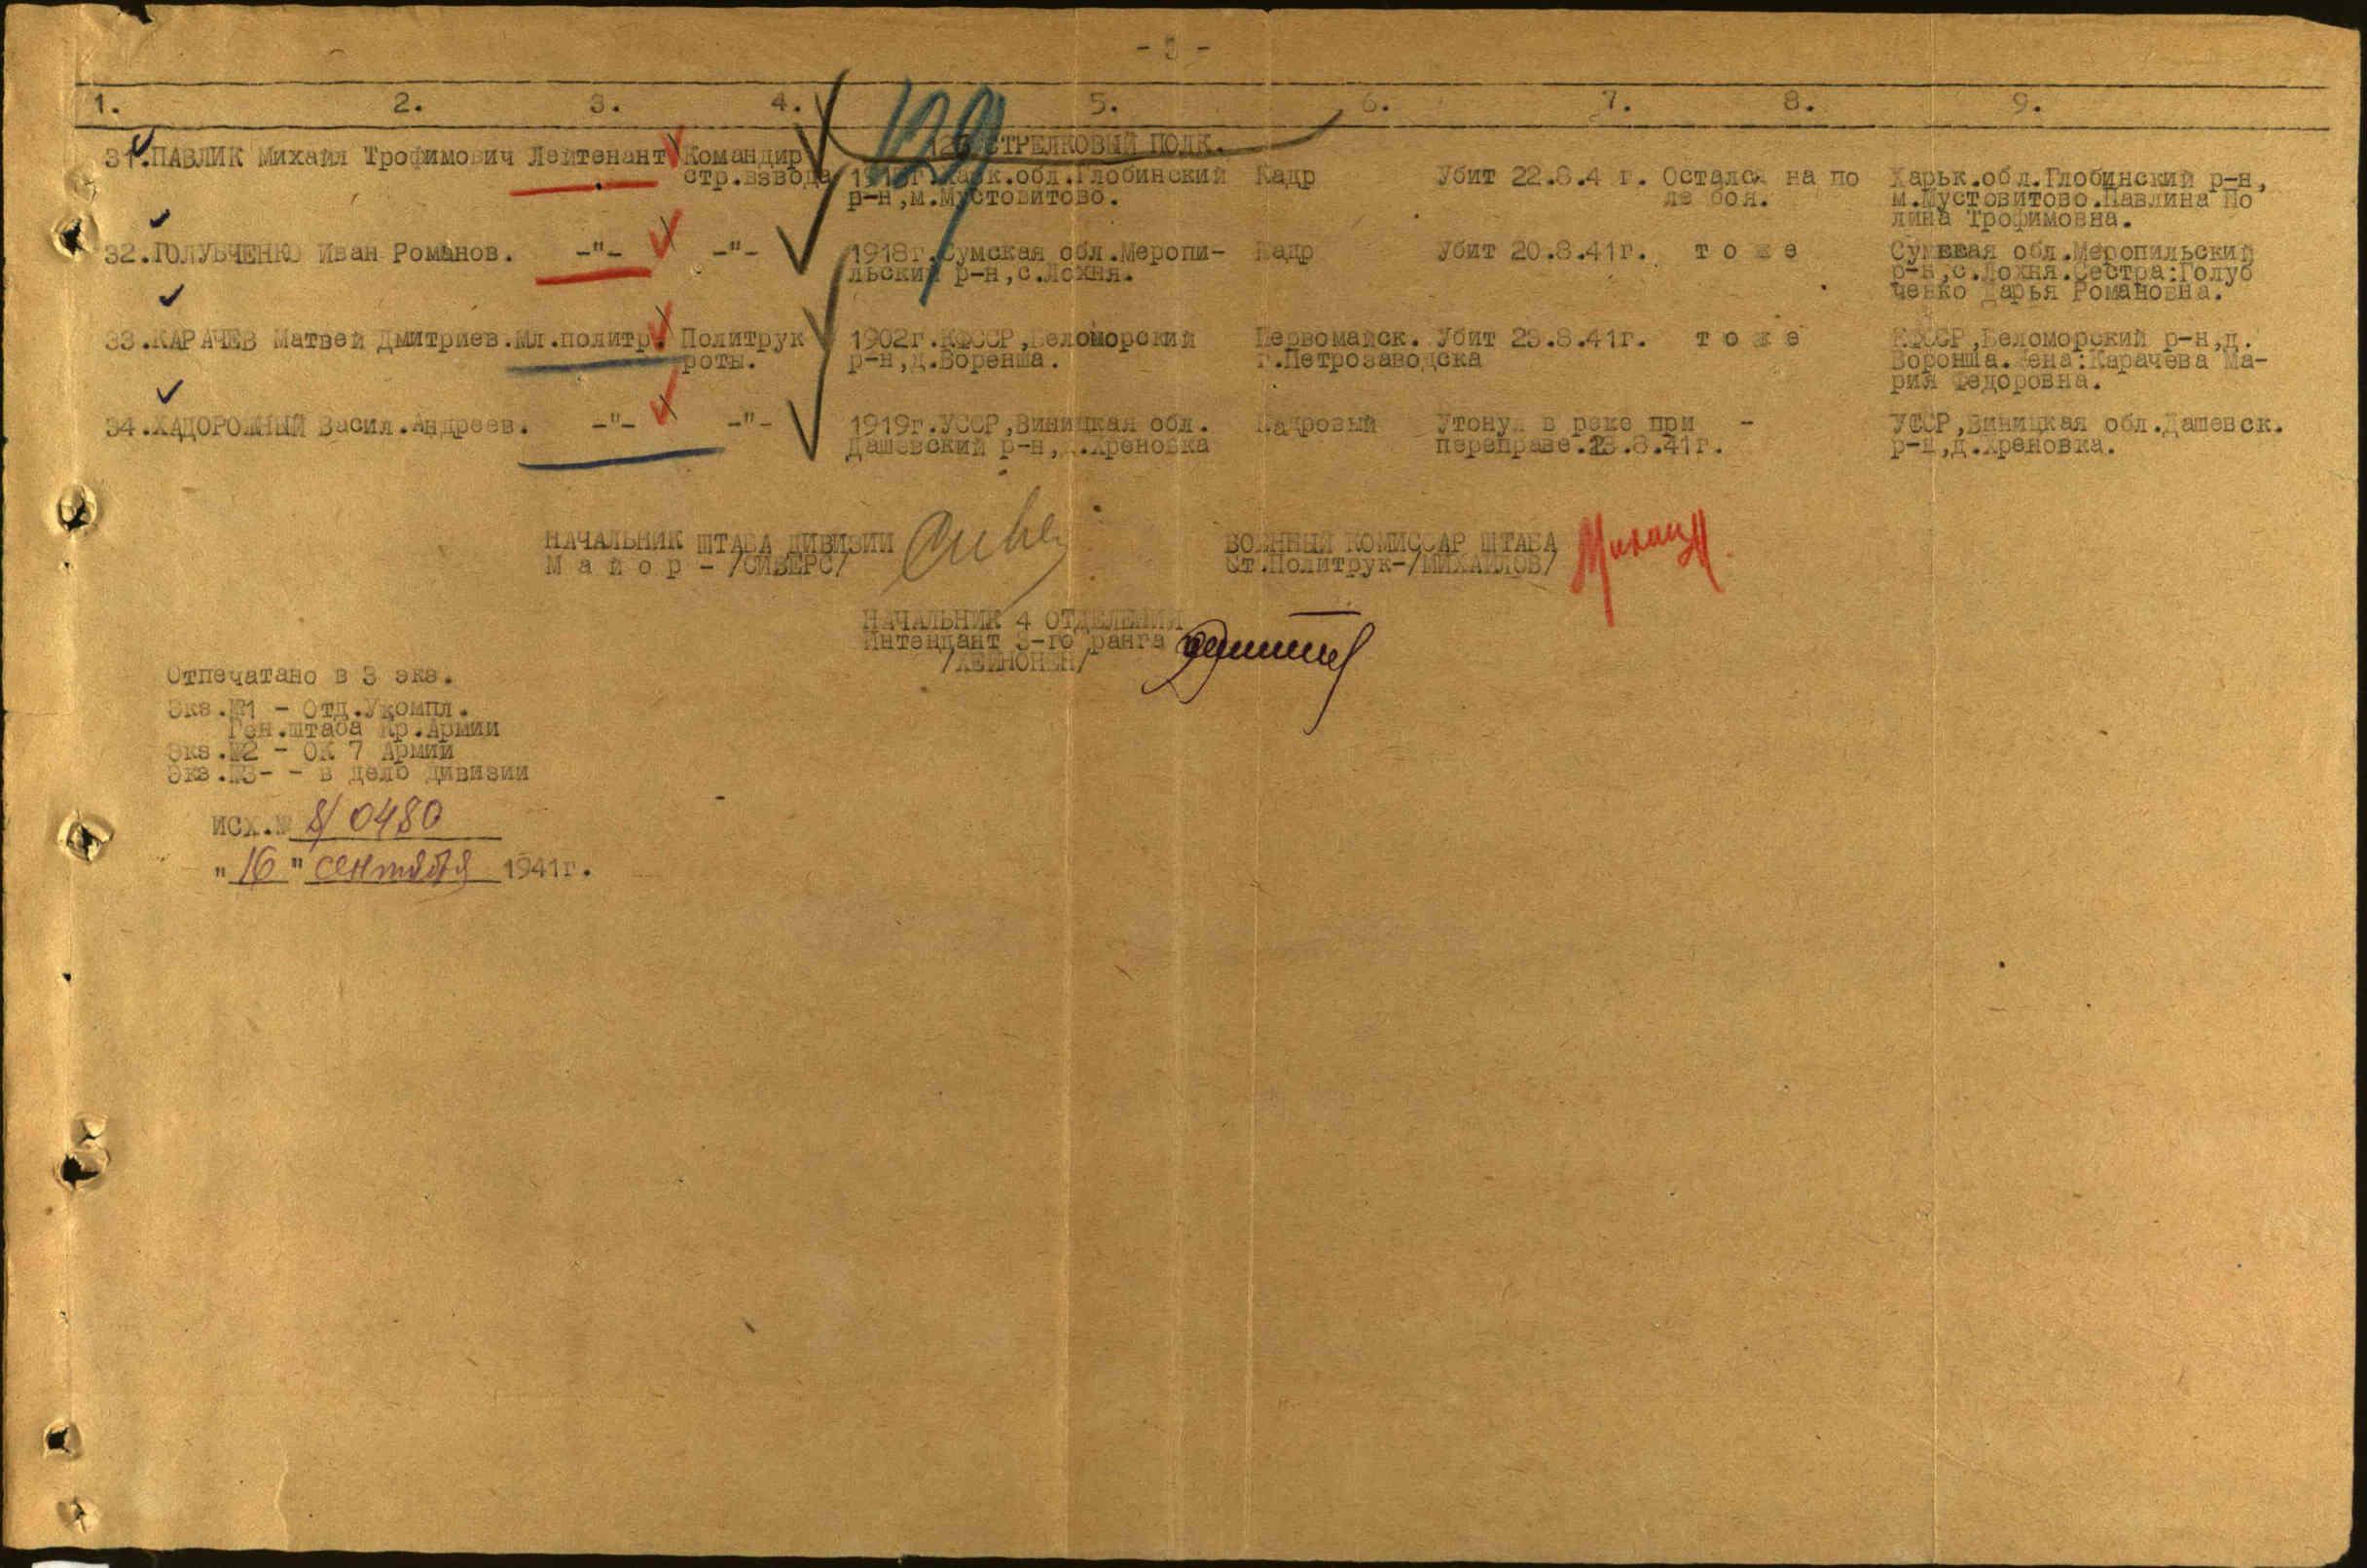 1. 2. 3. 4. 5. 6. 7. 8. 9.
129
СТРЕЛКОВЫЙ ПОЛК.
31.ПАВЛИК Михаил Трофимович Лейтенант Командир
стр.взвода Харк.обл.Глобинский Кадр Убит 22.8.4 г. Остался на по Харьк.обл.Глобинский р-н,
р-н,м.Мустовитово. ле боя. м.Мустовитово.Павлина По
лина Трофимовна.
32.ГОЛУБЧЕНКО Иван Романов. -"- -"- 1918г.Сумская обл.Меропи- Кадр Убит 20.8.41г. т о ж е Сумская обл.Меропильский
льский р-н,с.Лохня. р-н,с.Лохня.Сестра:Голуб
ченко Дарья Романовна.
33.КАРАЧЕВ Матвей Дмитриев.Мл.политр. Политрук 1902г.КФССР,Беломорский Первомайск. Убит 23.8.41г. т о ж е КФССР,Беломорский р-н,д.
роты. р-н,д.Воренжа. г.Петрозаводска Воронжа.Жена:Карачева Ма-
рия Федоровна.
34.ХАДОРОЖНЫЙ Васил.Андреев. -"- -"- 1919г.УССР,Виницкая обл. Кадровый Утонул в реке при - УССР,Виницкая обл.Дашевск.
Дашевский р-н,д.Хреновка переправе.23.8.41г. р-н,д.Хреновка.
НАЧАЛЬНИК ШТАБА ДИВИЗИИ ВОЕННЫЙ КОМИССАР ШТАБА
М а й о р - /СИВЕРС/ Ст.Политрук-/МИХАЙЛОВ/
НАЧАЛЬНИК 4 ОТДЕЛЕНИЯ
Интендант 3-го ранга
/ХЕЙНОНЕН/
Отпечатано в 3 экз.
Экз.№1 - Отд.Укомпл.
Ген.штаба Кр.Армии
Экз.№2 - ОК 7 Армии
Экз.№3- - в дело дивизии
исх.№ 8/0480
"16" сентября 1941г.